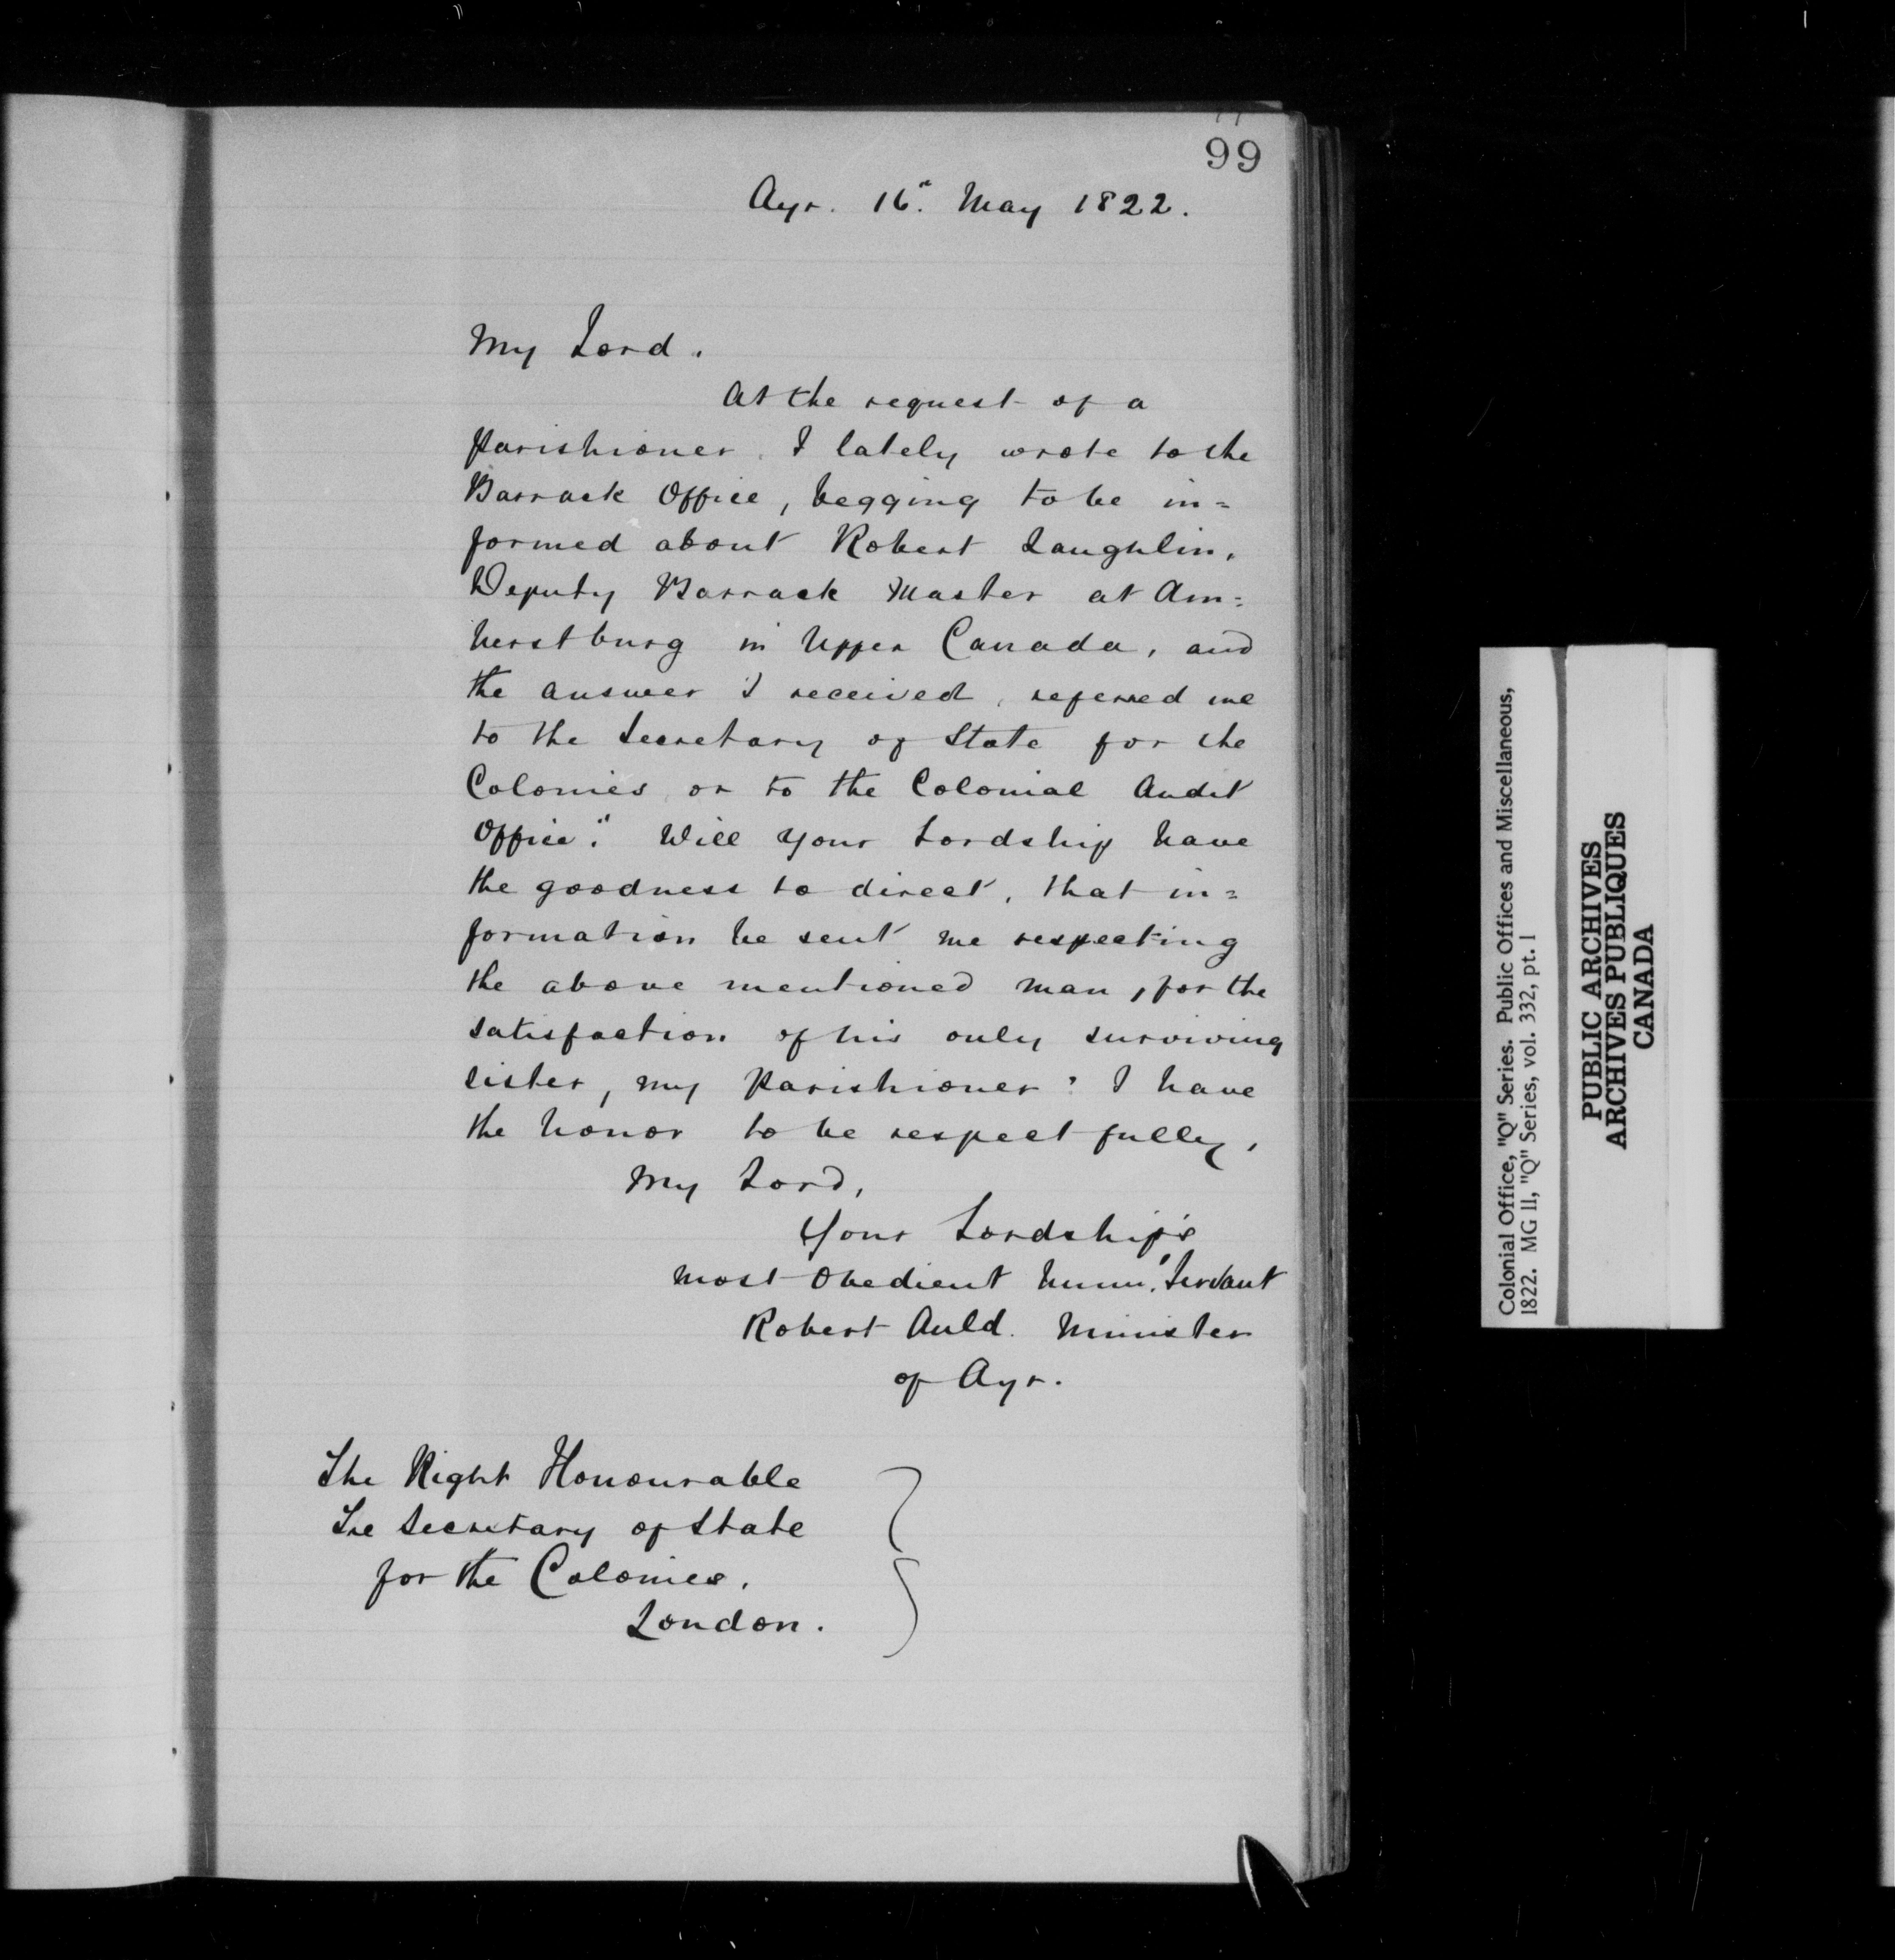 99
Ayr. 16." May 1822.
My Lord.
At the request of a
parishioner, I lately wrote to the
Barrack Office, begging to be in=
formed about Robert Laughlin,
Deputy Barrack Master at Am=
herstburg in Upper Canada, and
the answer I received, referred me
to the Secretary of State for the
Colonies, or to the Colonial Audit
Office." Will your Lordship have
the goodness to direct, that in=
formation be sent me respecting
the above mentioned man, for the
satisfaction of his only surviving
sister, my parishioner? I have
the honor to be respectfully,
My Lord,
Your Lordship's
most obedient hum. Servant
Robert Auld. Minister
of Ayr.
The Right Honourable
The Secretary of State
for the Colonies.
London.
Colonial Office, "Q" Series. Public Offices and Miscellaneous,
1822. MG 11, "Q" Series, vol. 332, pt. 1
PUBLIC ARCHIVES
ARCHIVES PUBLIQUES
CANADA